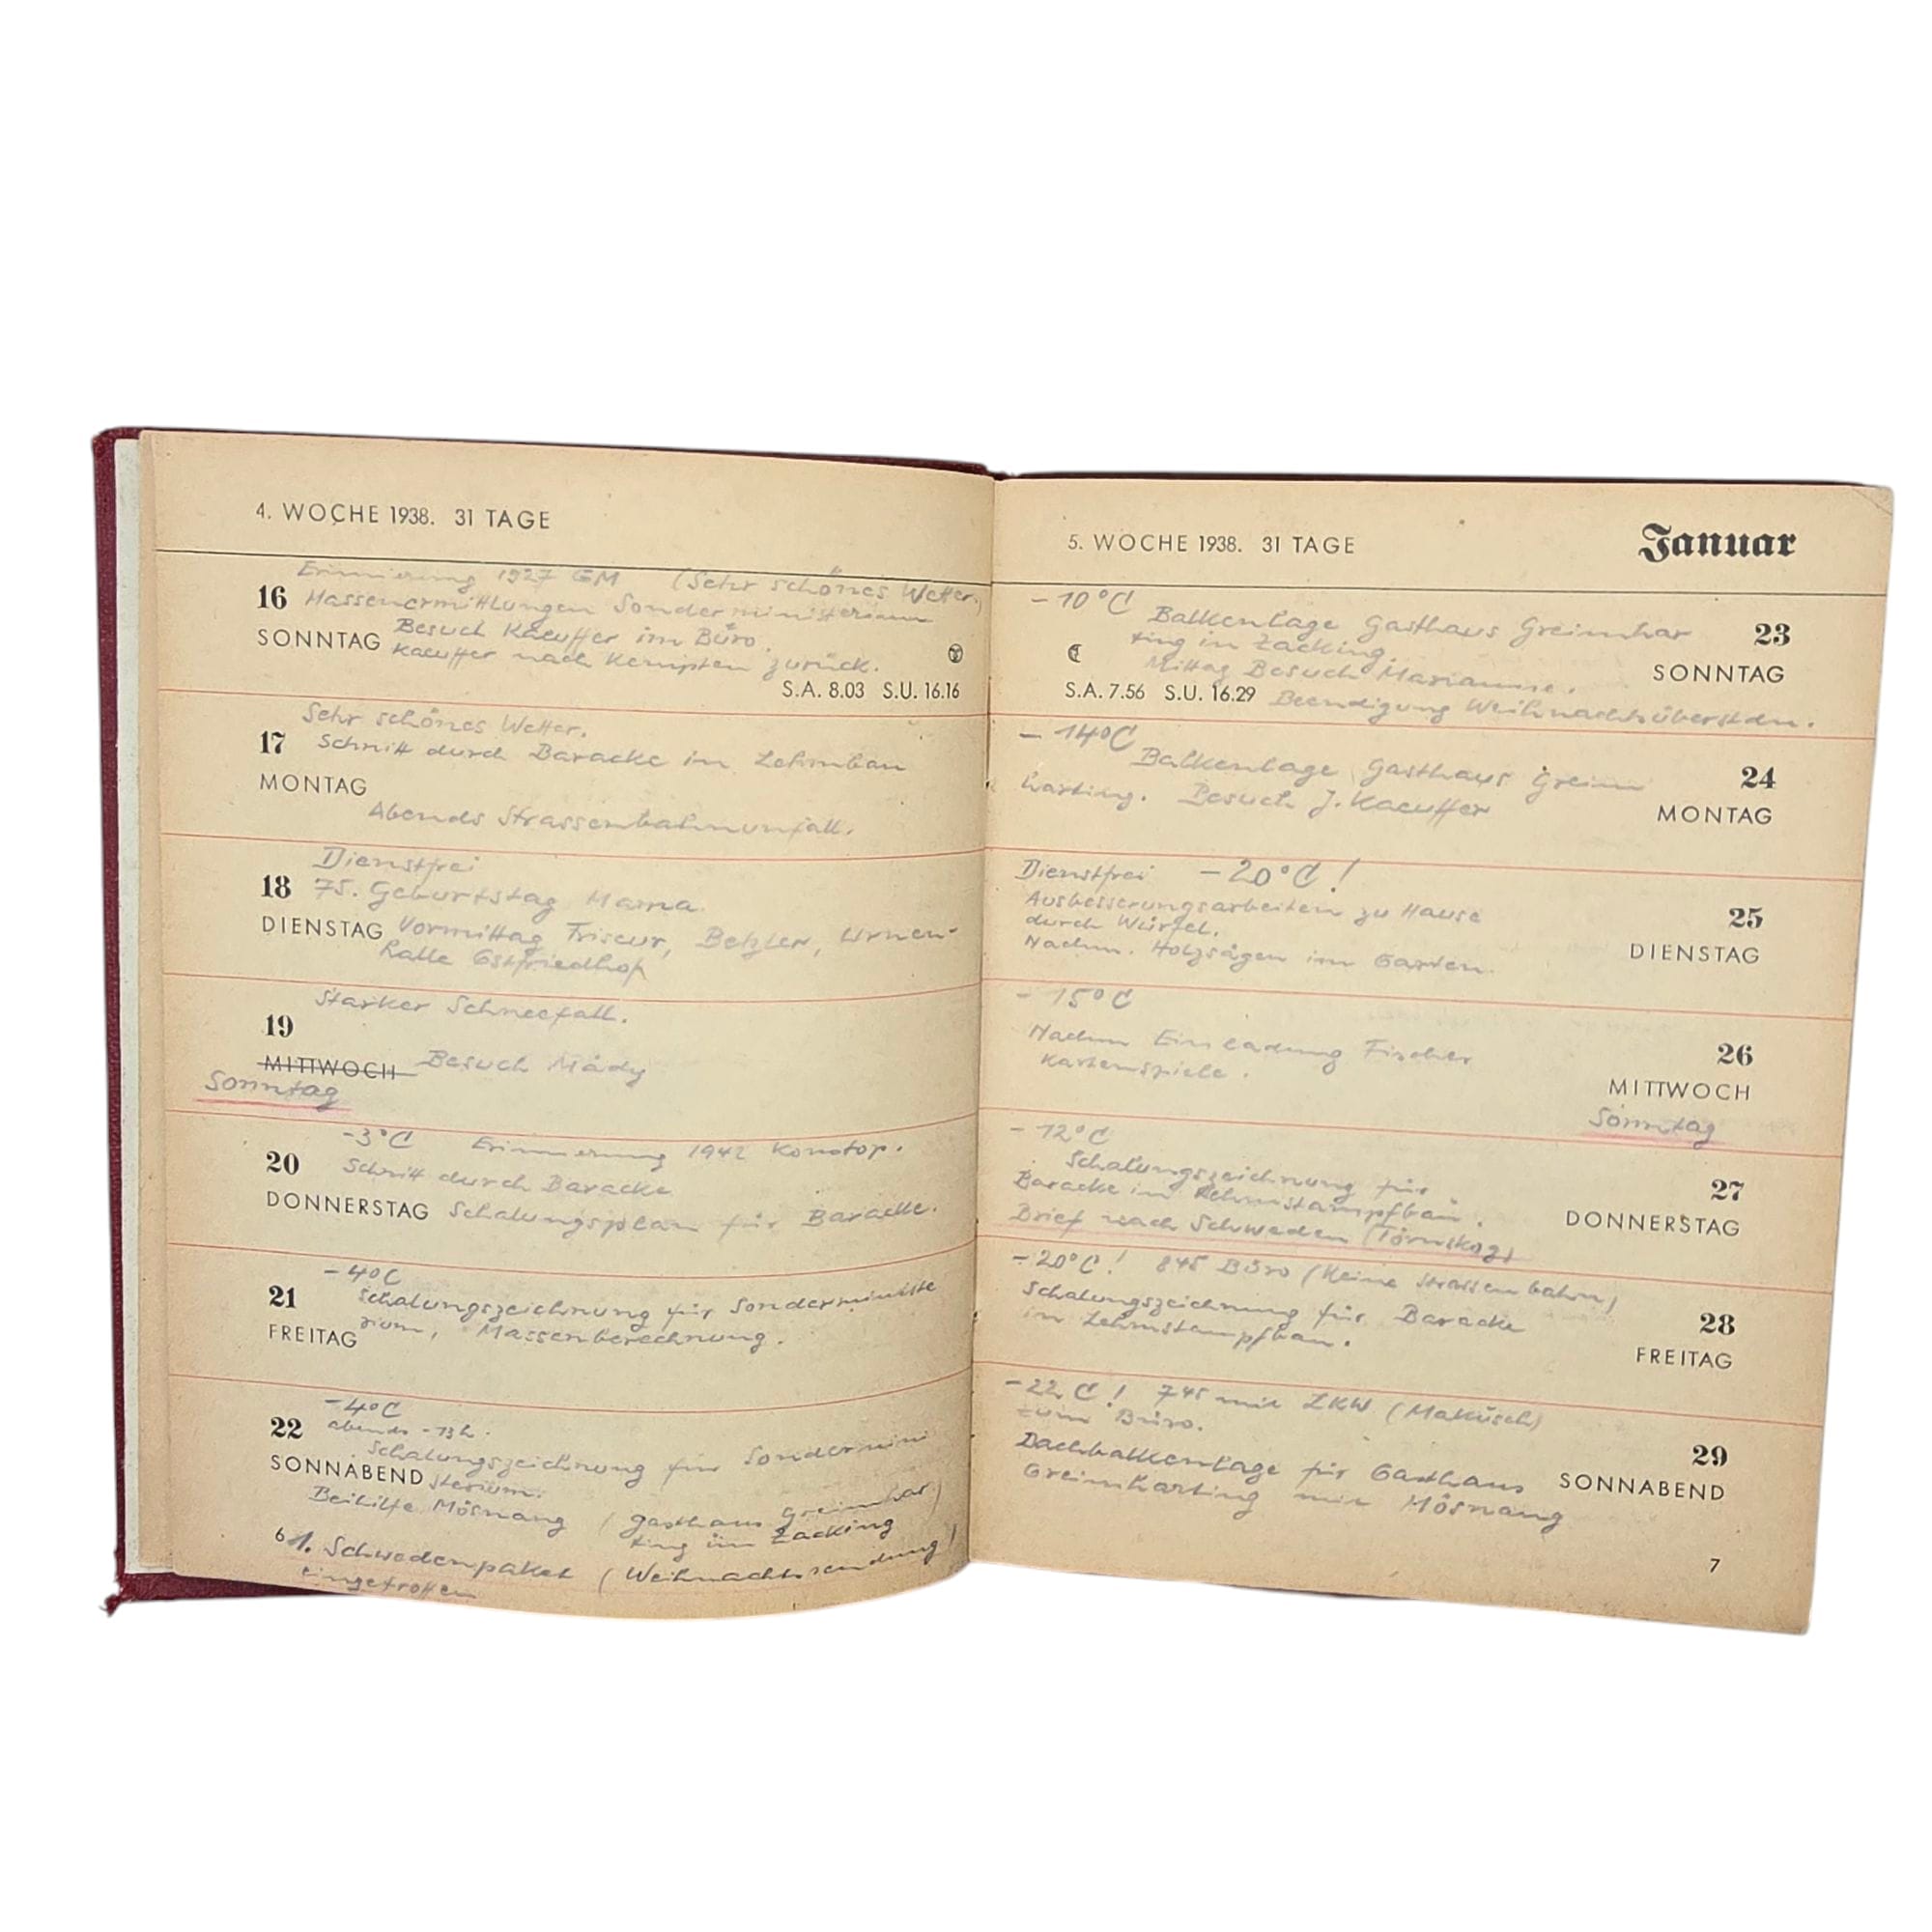 4. WOCHE 1938. 31 TAGE
Erinnerung 1927 GM (Sehr schönes Wetter.)
16 Massenermittlungen Sonderministerium
SONNTAG Besuch Kaeuffer im Büro.
Kaeuffer nach Kempten zurück.
S.A. 8.03 S.U. 16.16
Sehr schönes Wetter.
17 Schnitt durch Baracke im Lehmbau
MONTAG
Abends Strassenbahnunfall.
Dienstfrei
18 75. Geburtstag Mama
DIENSTAG Vormittag Friseur, Betzler, Urnen-
halle Ostfriedhof
Starker Schneefall.
19
MITTWOCH Besuch Mädy
Sonntag
-3°C Erinnerung 1942 Konotop.
20 Schnitt durch Baracke
DONNERSTAG Schalungsplan für Baracke.
-4°C
21 Schalungszeichnung für Sonderministe
FREITAG rium, Massenberechnung.
-4°C
22 abends -13h.
Schalungszeichnung für Sondermini
SONNABEND sterium.
Beihilfe Mösnang (Gasthaus Greimhar)
ting in Zacking
6 1. Schwedenpaket (Weihnachtssendung)
eingetroffen
5. WOCHE 1938. 31 TAGE Januar
-10°C Balkenlage Gasthaus Greimhar 23
ting in Zacking.
Mittag Besuch Marianne. SONNTAG
S.A. 7.56 S.U. 16.29 Beendigung Weihnachtsüberstdn.
-14°C
Balkenlage Gasthaus Greim 24
harting. Besuch J. Kaeuffer MONTAG
Dienstfrei -20°C!
Ausbesserungsarbeiten zu Hause 25
durch Würfel.
Nachm. Holzsägen im Garten. DIENSTAG
-15°C
Nachm Einladung Fischer 26
Kartenspiele. MITTWOCH
Sonntag
-12°C
Schalungszeichnung für 27
Baracke in Lehmstampfbau. DONNERSTAG
Brief nach Schweden (Törnskog)
-20°C! 845 Büro (Keine Strassenbahn)
Schalungszeichnung für Baracke 28
in Lehmstampfbau. FREITAG
-22 C! 745 mit LKW (Makusch)
zum Büro. 29
Dachbalkenlage für Gasthaus SONNABEND
Greimharting mit Mösnang
7